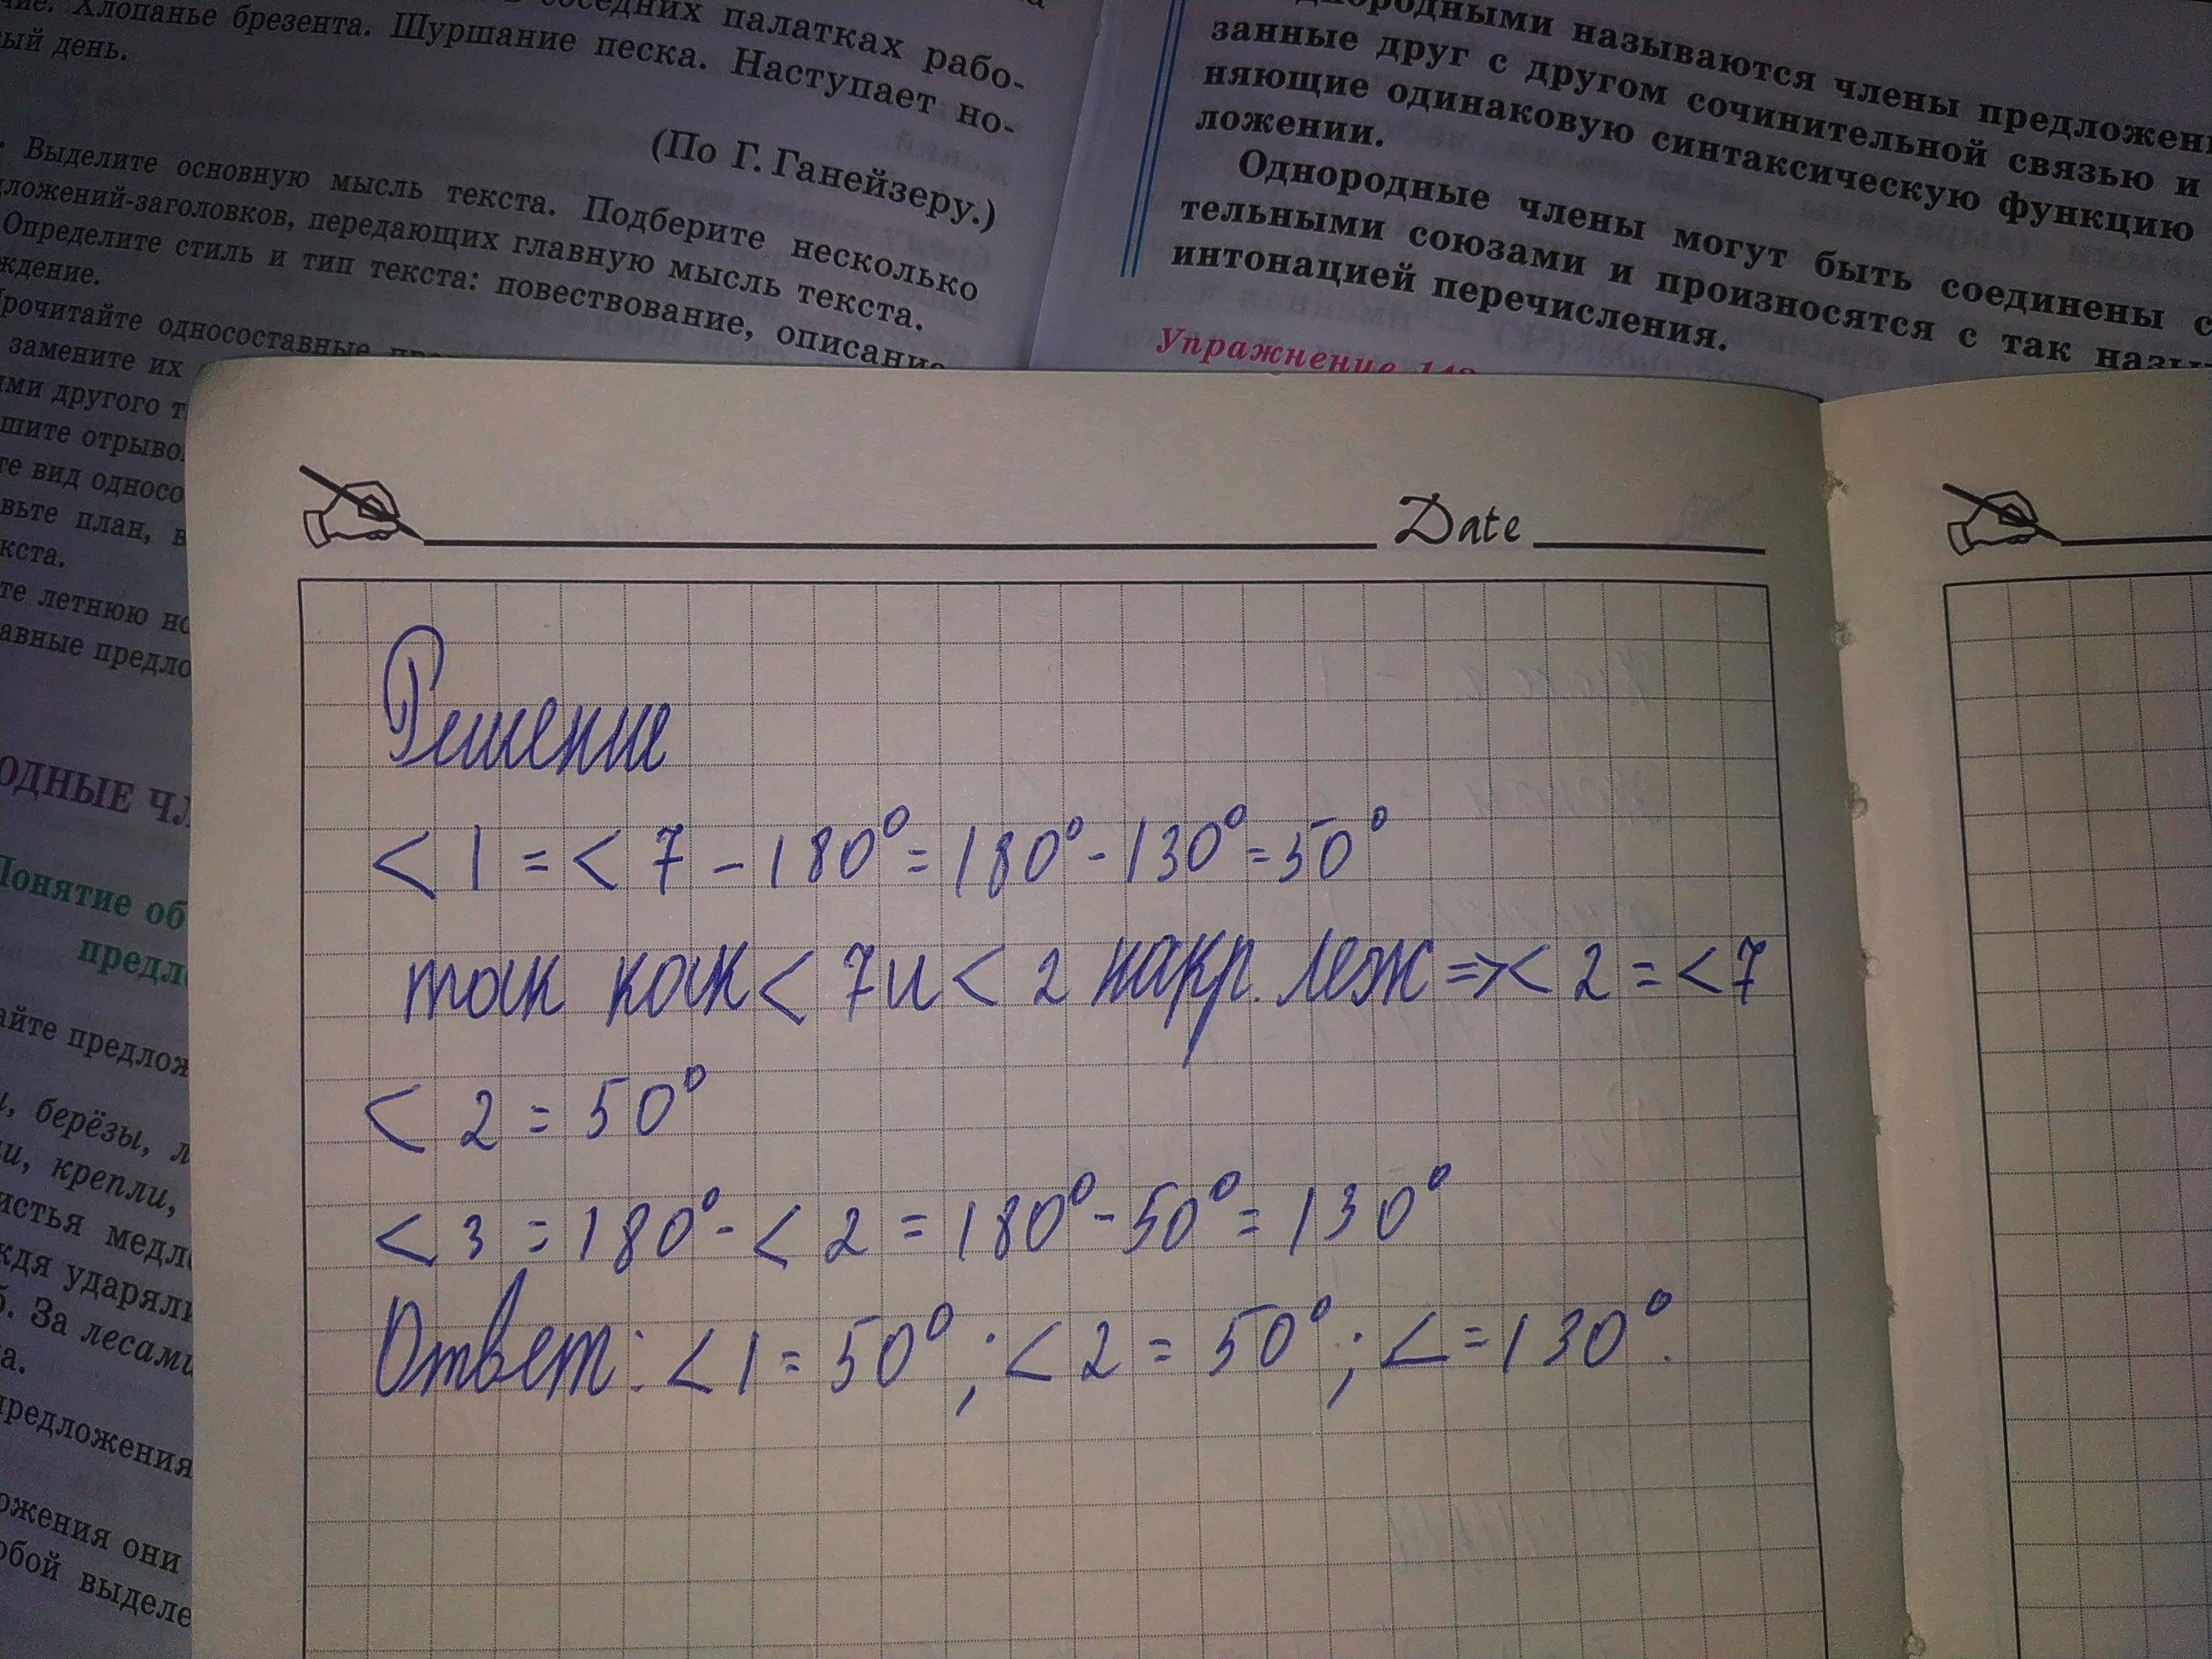 соседних палатках рабо-
Хлопанье брезента. Шуршание песка. Наступает но-
ый день.
(По Г. Ганейзеру.)
Выделите основную мысль текста. Подберите несколько
ложений-заголовков, передающих главную мысль текста.
Определите стиль и тип текста: повествование, описание
ждение.
рочитайте односоставные
замените их
ми другого т
шите отрыво
те вид односо
вьте план, в
кста.
те летнюю но
авные предло
ОДНЫЕ ЧЛ
Понятие об
предл
айте предлож
и, берёзы, л
и, крепли,
истья медл
ждя ударяли
б. За лесами
а.
предложения
ожения они
обой выделе
днородными называются члены предложени
занные друг с другом сочинительной связью и
няющие одинаковую синтаксическую функцию
ложении.
Однородные члены могут быть соединены с
тельными союзами и произносятся с так назы
интонацией перечисления.
Упражнение 142
Date
Решение
< 1 = < 7 - 180° = 180° - 130° = 50°
так как < 7 и < 2 накр. леж => < 2 = < 7
< 2 = 50°
< 3 = 180° - < 2 = 180° - 50° = 130°
Ответ: < 1 = 50°; < 2 = 50°; < = 130°.